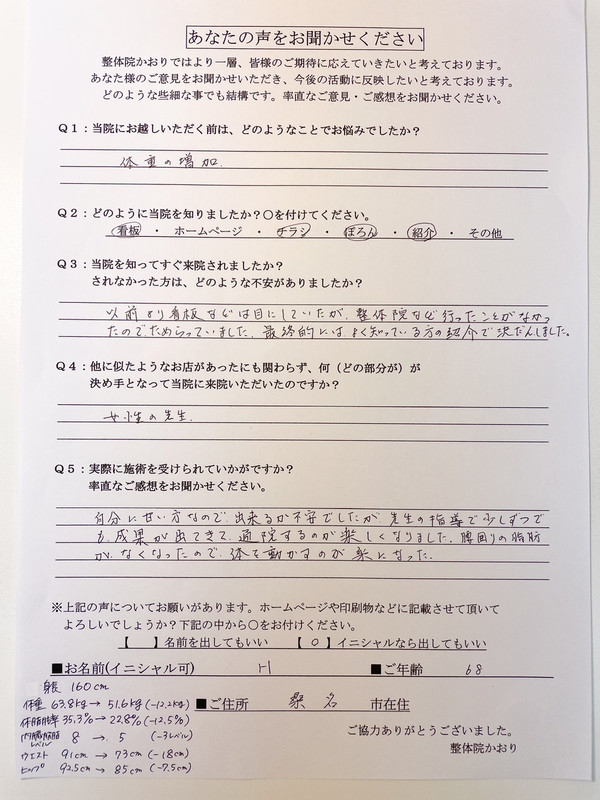 あなたの声をお聞かせください
整体院かおりではより一層、皆様のご期待に応えていきたいと考えております。
あなた様のご意見をお聞かせいただき、今後の活動に反映したいと考えております。
どのような些細な事でも結構です。率直なご意見・ご感想をお聞かせください。
Q1：当院にお越しいただく前は、どのようなことでお悩みでしたか？
体重の増加.
Q2：どのように当院を知りましたか？〇を付けてください。
看板 ・ ホームページ ・ チラシ ・ ぽろん ・ 紹介 ・ その他
Q3：当院を知ってすぐ来院されましたか？
されなかった方は、どのような不安がありましたか？
以前より看板などは目にしていたが、整体院など行ったことがなかっ
たのでためらっていました。最終的には、よく知っている方の紹介で決だんしました。
Q4：他に似たようなお店があったにも関わらず、何（どの部分が）が
決め手となって当院に来院いただいたのですか？
女性の先生.
Q5：実際に施術を受けられていかがですか？
率直なご感想をお聞かせください。
自分に甘い方なので、出来るか不安でしたが、先生の指導で少しずつで
も、成果が出てきて、通院するのが楽しくなりました。腰回りの脂肪
が、なくなったので、体を動かすのが楽になった.
※上記の声についてお願いがあります。ホームページや印刷物などに記載させて頂いて
よろしいでしょうか？下記の中から〇をお付けください。
【 】名前を出してもいい 【 〇 】イニシャルなら出してもいい
■お名前(イニシャル可) H ■ご年齢 68
身長 160cm
体重 63.8kg → 51.6kg (-12.2kg) ■ご住所 桑名 市在住
体脂肪率 35.3% → 22.8% (-12.5%)
内臓脂肪レベル 8 → 5 (-3レベル)
ウエスト 91cm → 73cm (-18cm)
ヒップ 92.5cm → 85cm (-7.5cm)
ご協力ありがとうございました。
整体院かおり